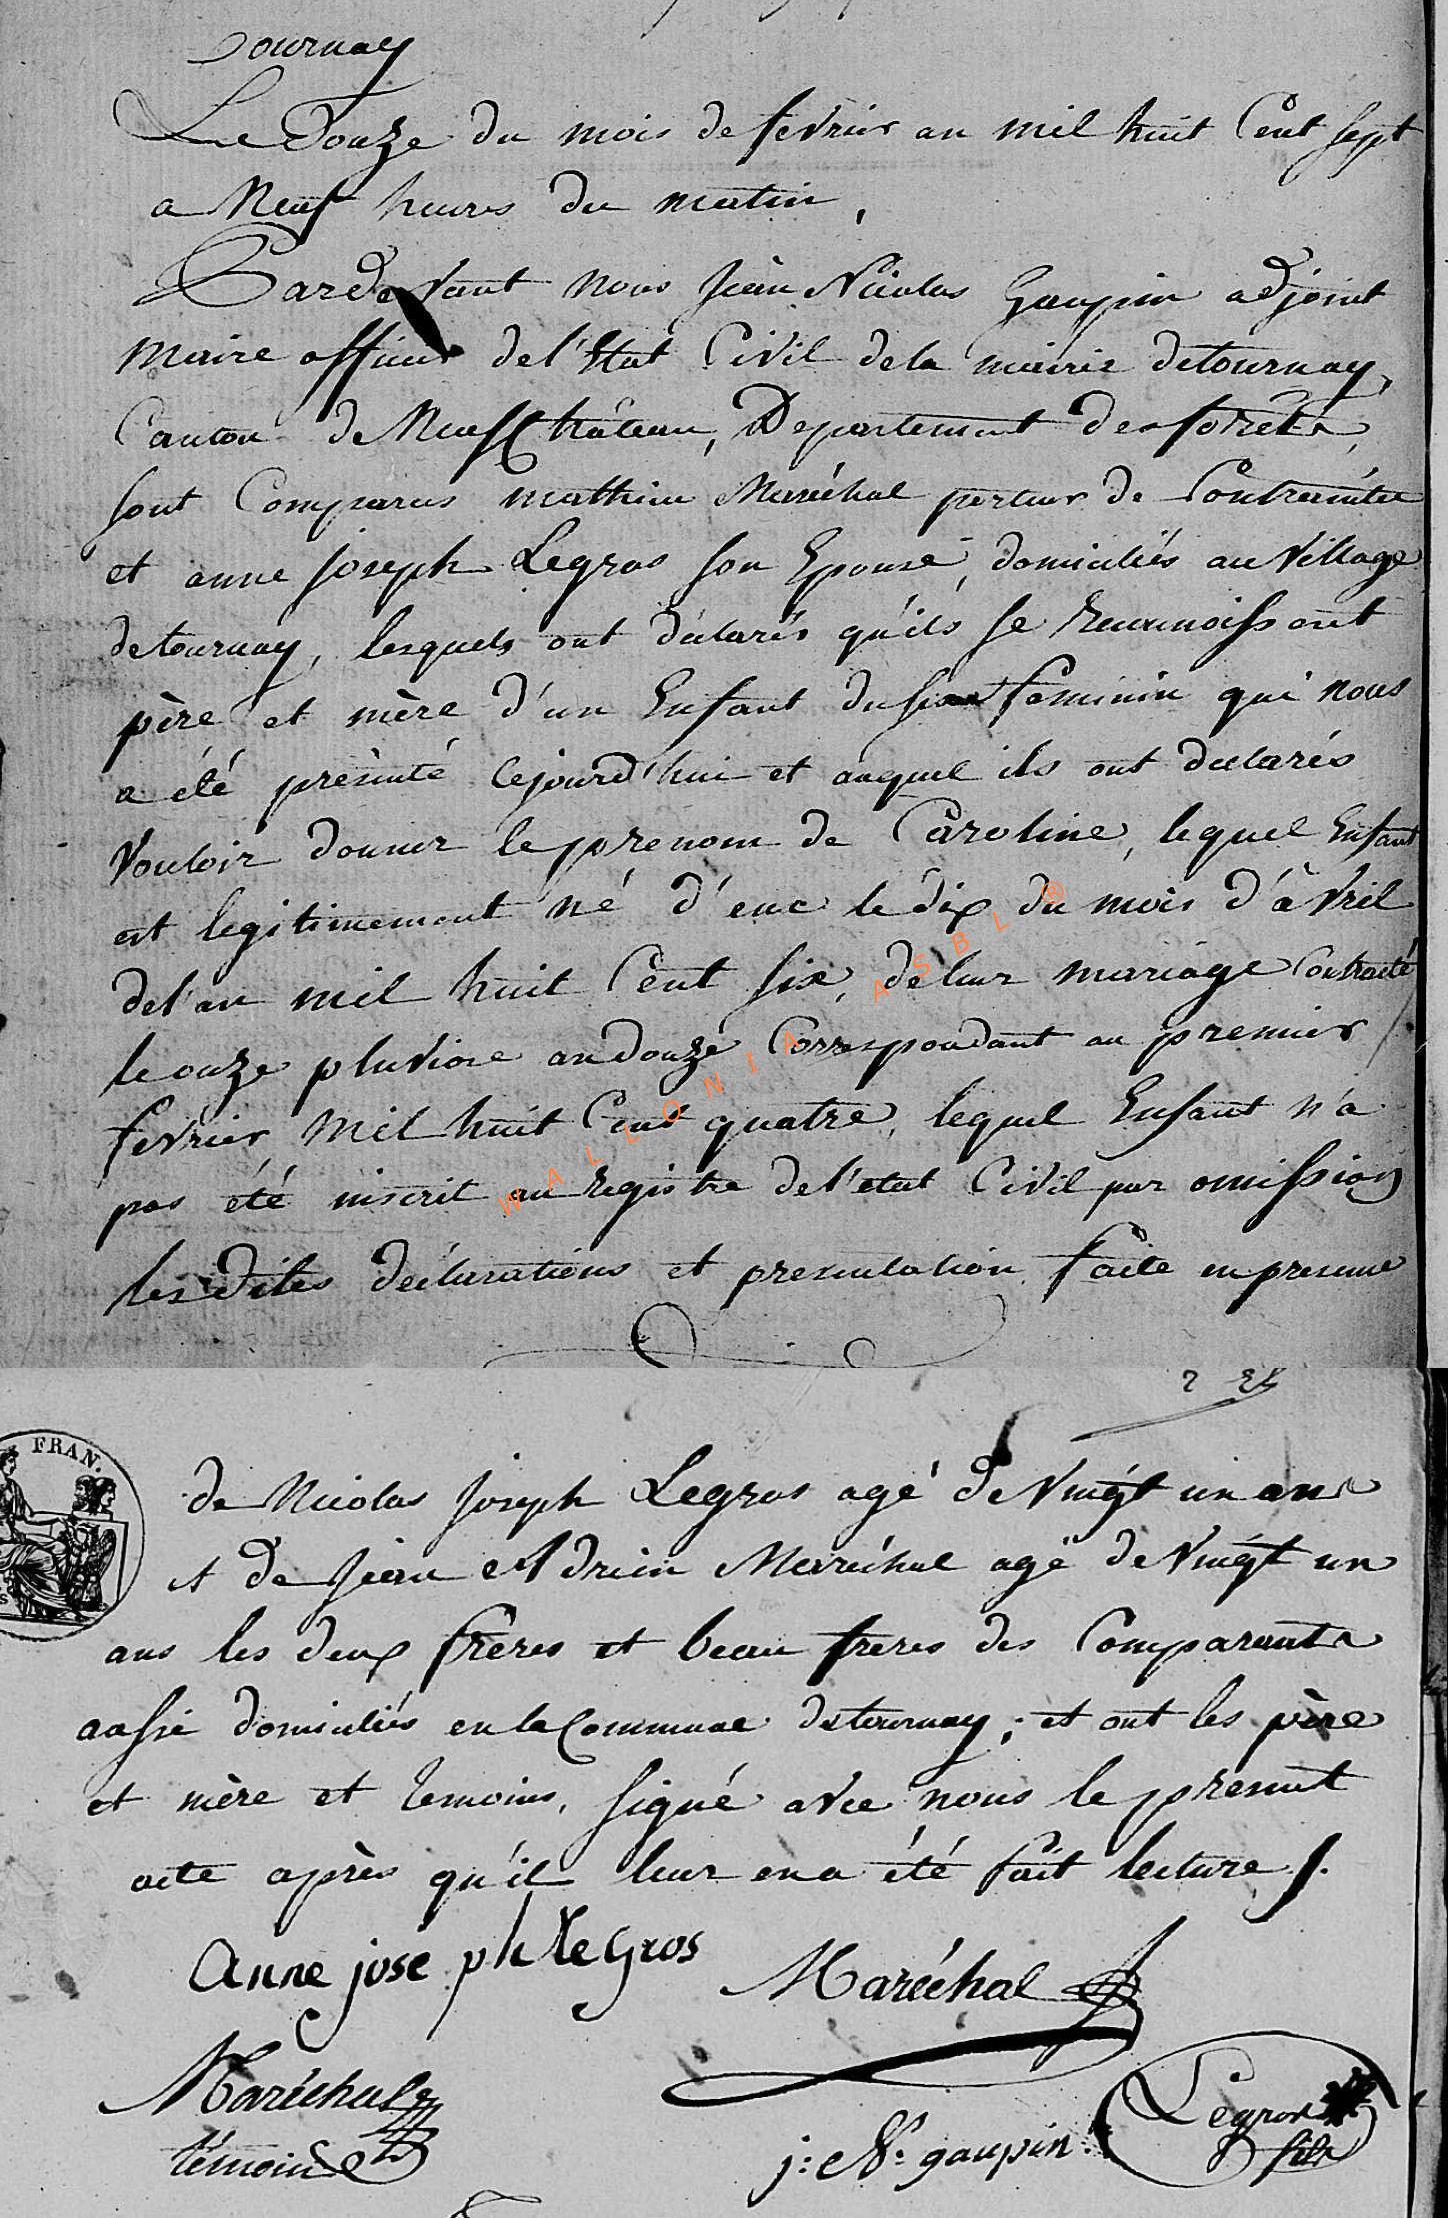 Tournay
Le Douze du mois de fevrier an mil huit Cent sept
a Neuf heures du matin,
Pardevant nous Jean Nicolas Gaupin adjoint
Maire officier de l'Etat Civil de la mairie de tournay,
Canton de Neufchâteau, Departement des forêts,
sont Comparus mathieu Maréchal porteur de Contraintes
et anne joseph Legros son Epouse, domiciliés au Village
de tournay, lesquels ont déclarés qu'ils se Reconnoissent
père et mère d'un Enfant du sexe féminin qui nous
a été présenté cejourd'hui et auquel ils ont declarés
Vouloir donner le prenom de Caroline, lequel Enfant
est legitimement né d'eux le dix du mois d'avril
de l'an mil huit Cent six, de leur mariage Contracté
le onze pluviose an douze Correspondant au premier
fevrier mil huit Cent quatre, lequel Enfant n'a
pas été inscrit au registre de l'etat Civil par omission
les dites déclarations et presentation faite en presence
WALLONIA ASBL ®
FRAN.
de Nicolas Joseph Legros agé de Vingt un ans
et de Jean Adrien Maréchal agé de Vingt un
ans les deux frères et beau freres des Comparants
aussi domiciliés en la Commune de tournay; et ont les père
et mère et temoins, signé avec nous le present
acte après qu'il leur en a été fait lecture /.
Anne jose ph leGros
Maréchal
Maréchal
témoin
j: N: gaupin
Legros
fils